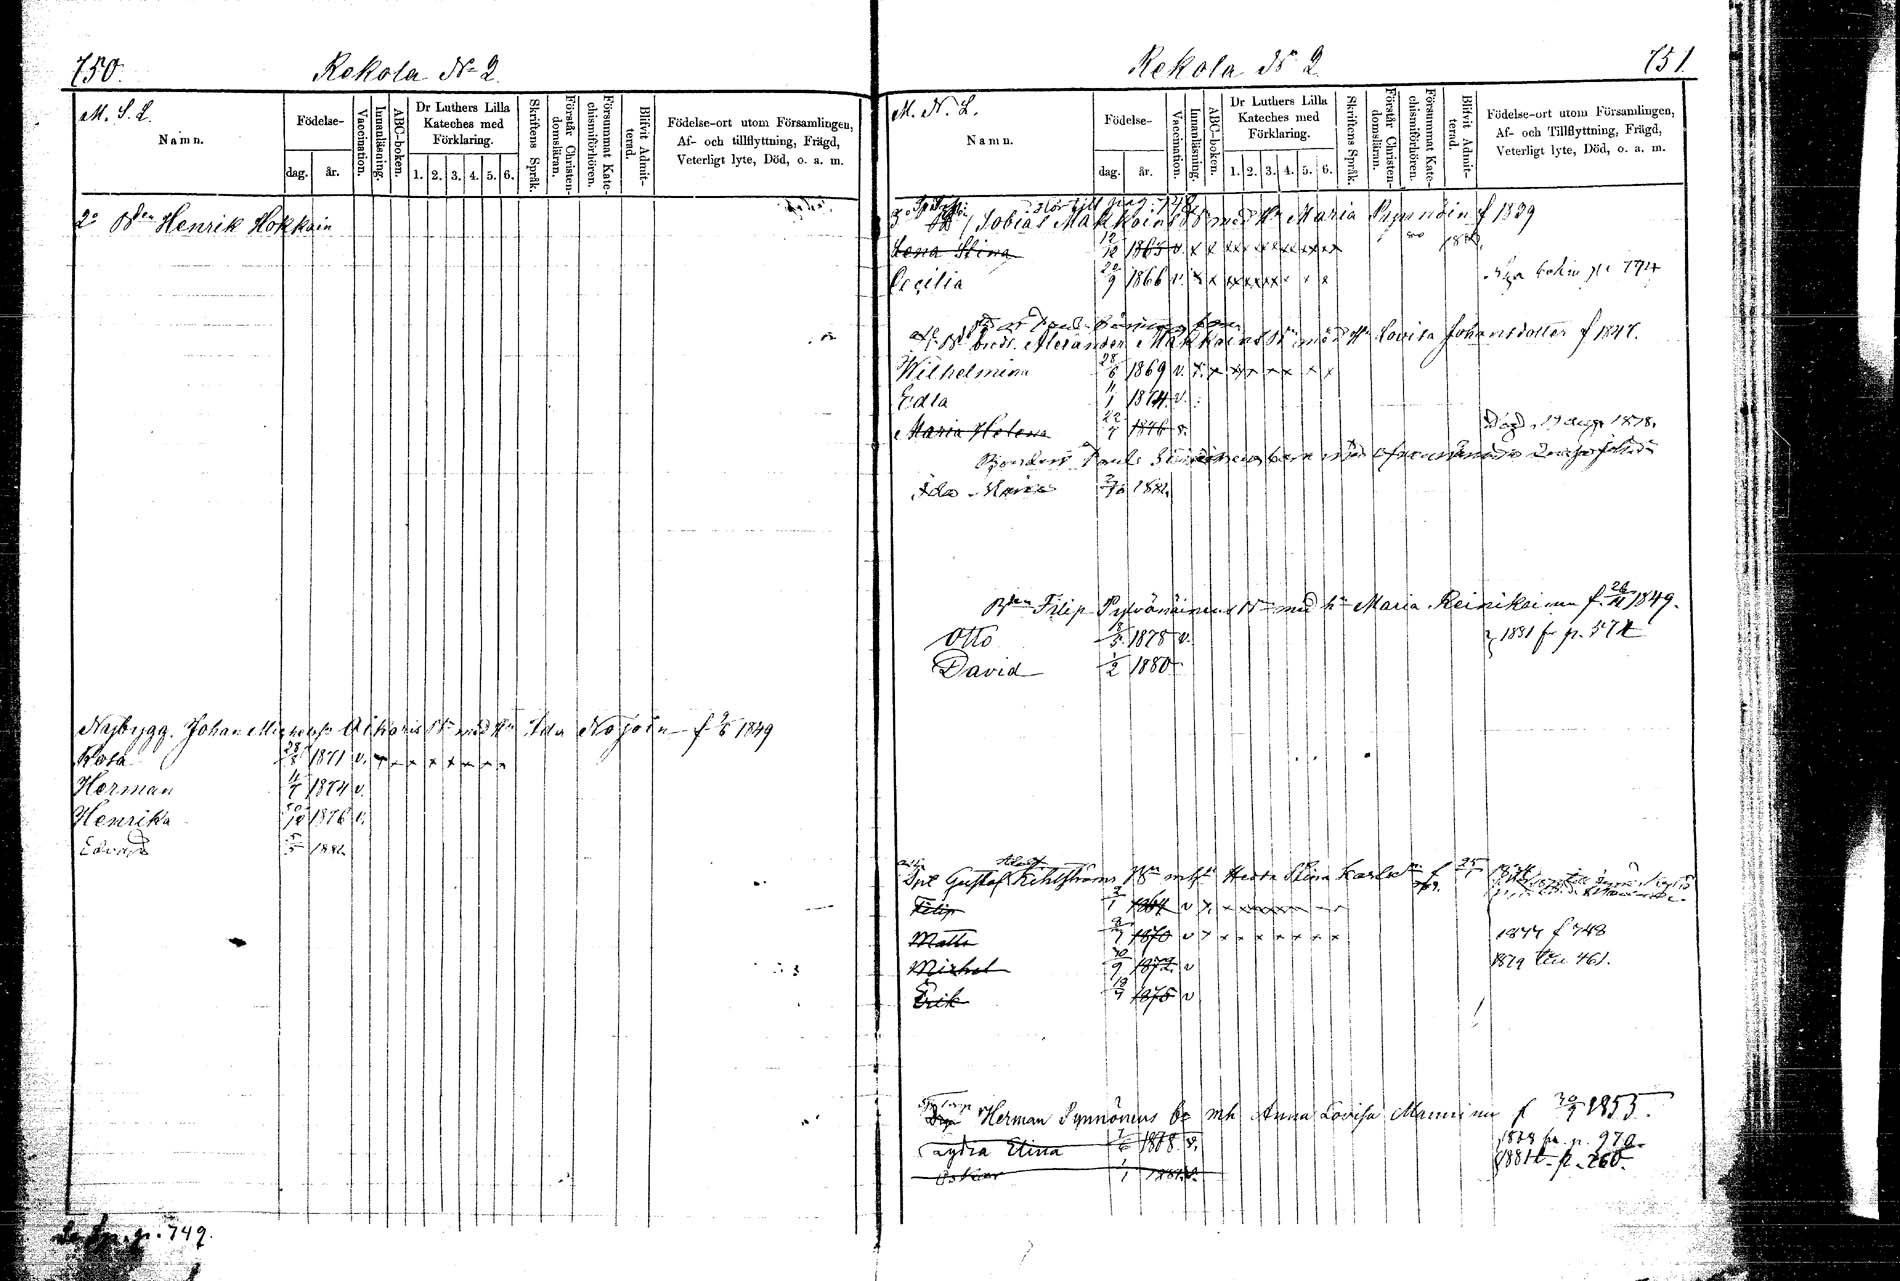 750.
Rekola No 2
M. S. L.
Namn.
Födelse-
dag.
år.
Vaccination.
Innanläsning.
ABC-boken.
Dr Luthers Lilla
Kateches med
Förklaring.
1. 2. 3. 4. 5. 6.
Skriftens Språk.
Förstår Christen-
domsläran.
Försummat Kate-
chismiförhören.
Blifvit Admit-
terad.
Födelse-ort utom Församlingen,
Af- och tillflyttning, Frägd,
Veterligt lyte, Död, o. a. m.
2o Bden Henrik Hokkain
Nybygg. Johan Michelss Aikaris Bn med Hu Ida Nojoin f 9/6 1849
Rosa 28/3 1871 v. x x x x x x x x
Herman 4/7 1874 v.
Henrika 30/10 1876 v.
Edvard 5/5 1882
p. 749.
Rekola No 2
751.
M. N. L.
Namn.
Födelse-
dag.
år.
Vaccination.
Innanläsning.
ABC-boken.
Dr Luthers Lilla
Kateches med
Förklaring.
1. 2. 3. 4. 5. 6.
Skriftens Språk.
Förstår Christen-
domsläran.
Försummat Kate-
chismiförhören.
Blifvit Admit-
terad.
Födelse-ort utom Församlingen,
Af- och Tillflyttning, Frägd,
Veterligt lyte, Död, o. a. m.
hör till pag. 748
Tobias Makkoins Bn med Hu Maria Pynnöin f 1839
Lena Stina 12/12 1865 v. x x x x x x x x x x
Cecilia 22/9 1866 v. x x x x x x x x x 774
Alexander Makkoins Bn med Hu Lovisa Johansdotter f 1847.
Wilhelmina 28/6 1869 v. x x x x x x x x
Edla 4/1 1874 v.
Maria Helena 22/7 1876 v. Död 19 aug. 1878.
Bonden Pauls barn med
Ida Maria 2/10 1882.
Bden Filip Pylvänäinens Bn med hu Maria Reinikainen f. 26/11 1849.
Otto 18/5 1878 v. 1881 fr p. 574
David 1/2 1880
Gustaf Kihlströms Bn mhu Hedda Stina Karlsdr f 25/1
Filip 2/1 1864 v x
Matts 2/7 1870 v x x x x x x x x 1877 f 748
Michel 30/9 1872. v 1879 till 461.
Erik 18/7 1875 v
Herman Pynnönens bn mh Anna Lovisa Manninen f 30/7 1853.
Lydia Elina 7/6 1878. v. 1878 fr. p. 970.
Oskar 1/1 1881. v. 1881 t. p. 260.